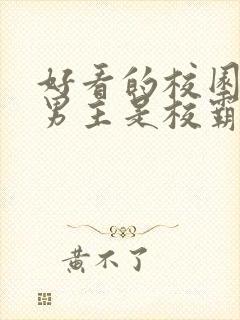 好看的校园
男主是校霸
黄不了